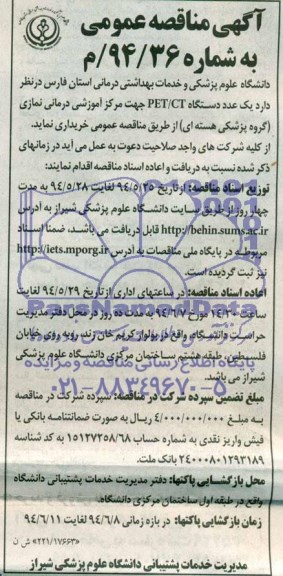 آگهی مناقصه عمومی
به شماره ۹۴/۳۶/م
دانشگاه علوم پزشکی و خدمات بهداشتی درمانی استان فارس درنظر
دارد یک عدد دستگاه PET/CT جهت مرکز آموزشی درمانی نمازی
(گروه پزشکی هسته ای) از طریق مناقصه عمومی خریداری نماید.
از کلیه شرکت های واجد صلاحیت دعوت به عمل می آید در زمانهای
ذکر شده نسبت به دریافت و اعاده اسناد مناقصه اقدام نمایند:
توزیع اسناد مناقصه: از تاریخ ۹۴/۵/۲۵ لغایت ۹۴/۵/۲۸ به مدت
چهار روز از طریق سایت دانشگاه علوم پزشکی شیراز به آدرس
http://behin.sums.ac.ir قابل دریافت می باشد. ضمنا اسناد
مربوطه در پایگاه ملی مناقصات به آدرس http://iets.mporg.ir
نیز ثبت گردیده است.
اعاده اسناد مناقصه: در ساعتهای اداری از تاریخ ۹۴/۵/۲۹ لغایت
ساعت ۱۴/۳۰ مورخ ۹۴/۶/۷ به مدت ده روز در محل دفتر مدیریت
حراست دانشگاه، واقع در بولوار کریم خان زند، روبه روی خیابان
فلسطین، طبقه هشتم ساختمان مرکزی دانشگاه علوم پزشکی
شیراز می باشد.
مبلغ تضمین سپرده شرکت در مناقصه: سپرده شرکت در مناقصه
به مبلغ ۴/۰۰۰/۰۰۰/۰۰۰ ریال به صورت ضمانتنامه بانکی یا
فیش واریز نقدی به شماره حساب ۱۵۱۲۷۲۵۸/۶۸ به کد شناسه
۲۴۰۰۰۸۰۱۲۹۳۱۸۹ بانک ملت.
محل بازگشایی پاکتها: دفتر مدیریت خدمات پشتیبانی دانشگاه
واقع در طبقه اول ساختمان مرکزی دانشگاه.
زمان بازگشایی پاکتها: در بازه زمانی ۹۴/۶/۸ لغایت ۹۴/۶/۱۱
۲۲۱/۱۷۶۶۳۰ش ن
مدیریت خدمات پشتیبانی دانشگاه علوم پزشکی شیراز
پایگاه اطلاع رسانی مناقصه و مزایده
۰۲۱-۸۸۳۴۹۶۷۰-۵